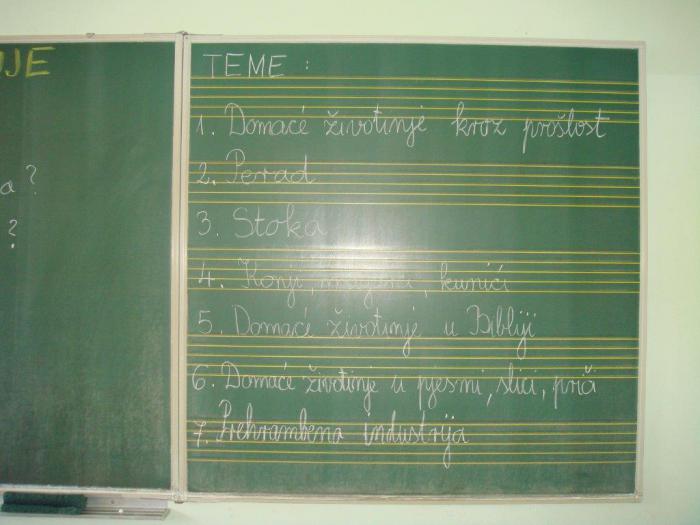 IJE
a?
?
TEME :
1. Domaće životinje kroz prošlost
2. Perad
3. Stoka
4. Konji, magarci, kunići
5. Domaće životinje u Bibliji
6. Domaće životinje u pjesmi, slici, priči
7. Prehrambena industrija